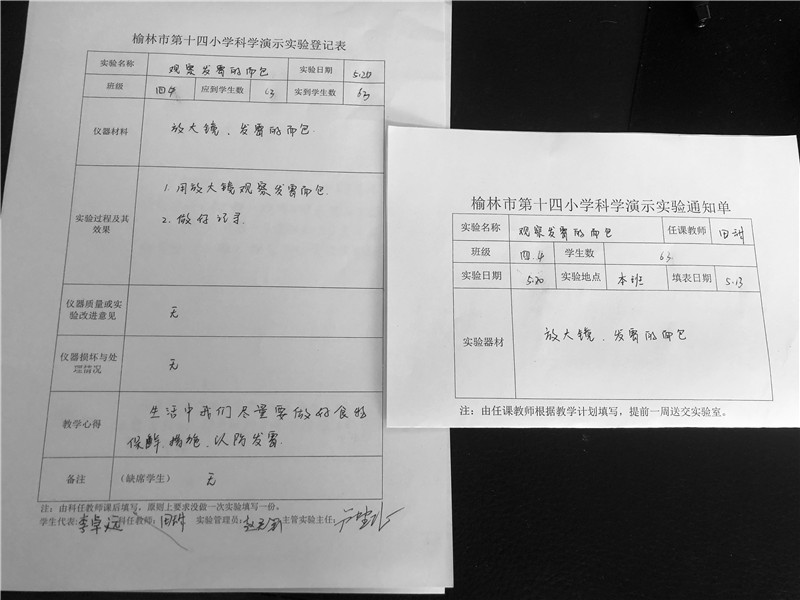 榆林市第十四小学科学演示实验登记表
实验名称 观察发霉的面包 实验日期 5.20
班级 四.4 应到学生数 63 实到学生数 63
仪器材料 放大镜、发霉的面包.
实验过程及其效果
1. 用放大镜观察发霉面包.
2. 做好记录.
仪器质量或实验改进意见 无
仪器损坏与处理情况 无
教学心得
生活中我们尽量要做好食物
保鲜措施,以防发霉.
备注 (缺席学生) 无
注:由科任教师课后填写,原则上要求没做一次实验填写一份。
学生代表: 李卓远 科任教师: 实验管理员: 主管实验主任:
榆林市第十四小学科学演示实验通知单
实验名称 观察发霉的面包 任课教师 田
班级 四.4 学生数 63.
实验日期 5.20 实验地点 本班 填表日期 5.13
实验器材 放大镜、发霉的面包
注:由任课教师根据教学计划填写,提前一周送交实验室。